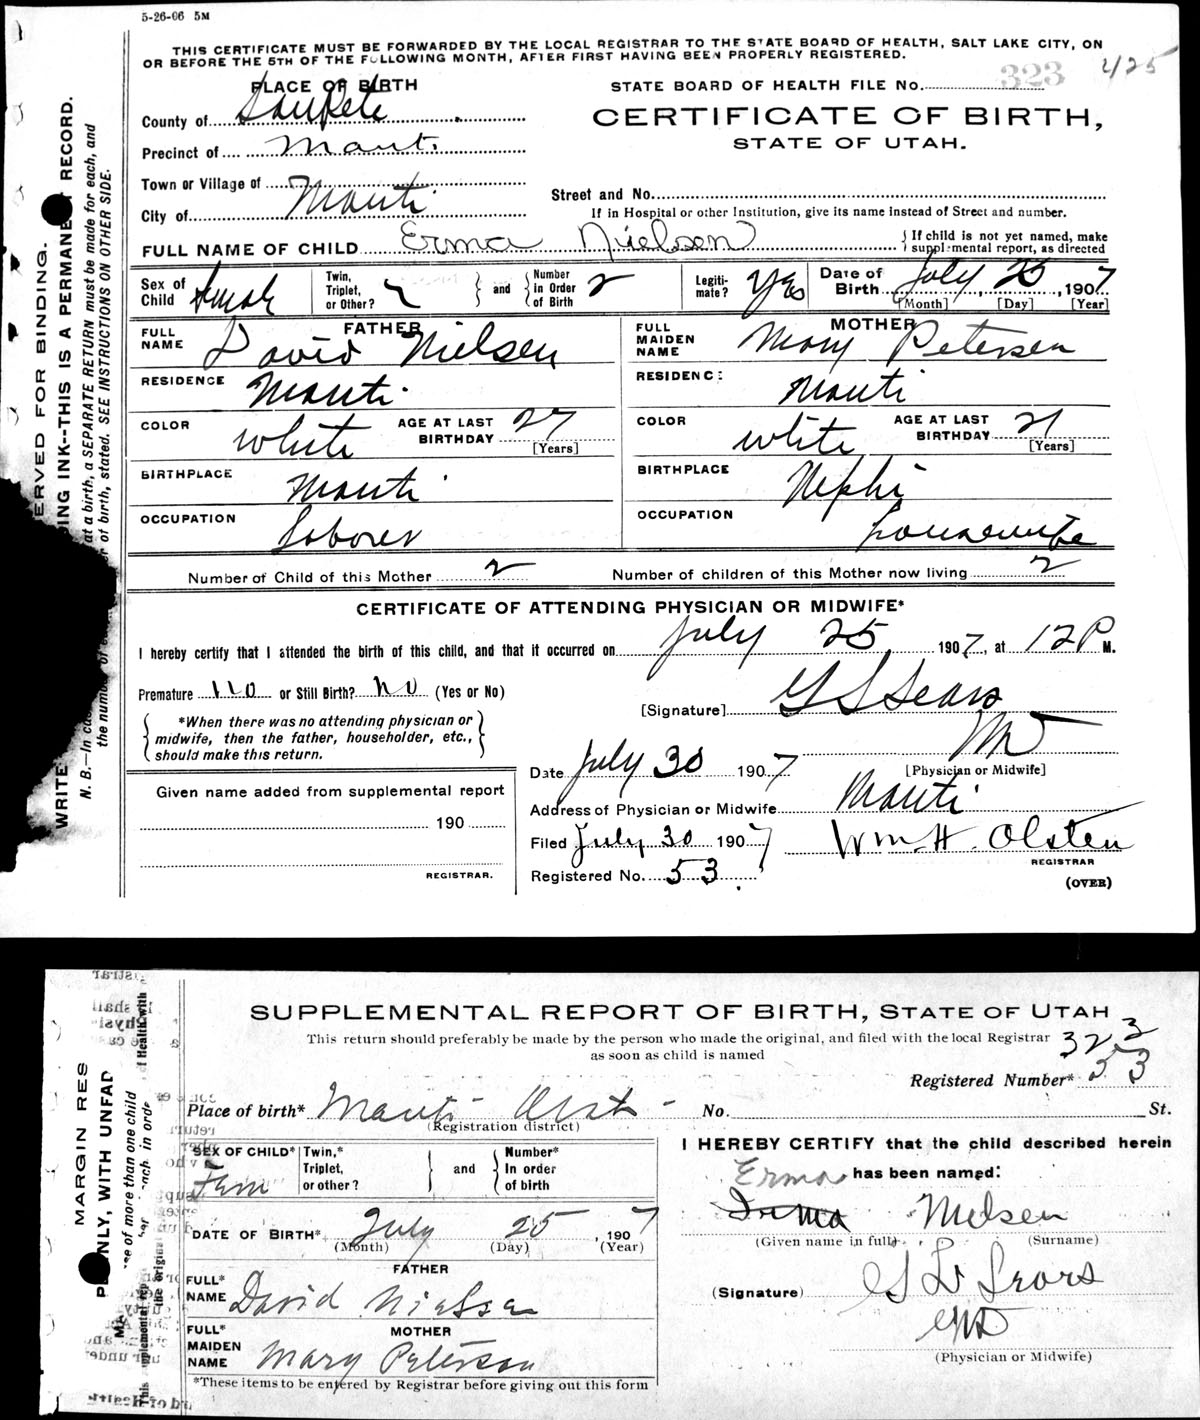 5-26-06 5M
THIS CERTIFICATE MUST BE FORWARDED BY THE LOCAL REGISTRAR TO THE STATE BOARD OF HEALTH, SALT LAKE CITY, ON
OR BEFORE THE 5TH OF THE FOLLOWING MONTH, AFTER FIRST HAVING BEEN PROPERLY REGISTERED.
PLACE OF BIRTH
STATE BOARD OF HEALTH FILE No. 323
County of Sanpete
CERTIFICATE OF BIRTH,
STATE OF UTAH.
Precinct of Manti
Town or Village of
City of Manti
Street and No.
If in Hospital or other Institution, give its name instead of Street and number.
FULL NAME OF CHILD Erma Nielson
{ If child is not yet named, make
supplemental report, as directed
Sex of Child Female
Twin, Triplet, or Other? } and { Number in Order of Birth 2
Legitimate? Yes
Date of Birth July 25, 1907
[Month] [Day] [Year]
FATHER
FULL NAME David Nielsen
RESIDENCE Manti
COLOR White AGE AT LAST BIRTHDAY 27 [Years]
BIRTHPLACE Manti
OCCUPATION Laborer
MOTHER
FULL MAIDEN NAME Mary Petersen
RESIDENCE Manti
COLOR White AGE AT LAST BIRTHDAY 21 [Years]
BIRTHPLACE Nephi
OCCUPATION housewife
Number of Child of this Mother 2 Number of children of this Mother now living 2
CERTIFICATE OF ATTENDING PHYSICIAN OR MIDWIFE*
I hereby certify that I attended the birth of this child, and that it occurred on July 25, 1907, at 12 P M.
Premature no or Still Birth? no (Yes or No)
[Signature] G L Sears
MD
[Physician or Midwife]
{ *When there was no attending physician or
midwife, then the father, householder, etc.,
should make this return. }
Date July 30 1907
Address of Physician or Midwife Manti
Given name added from supplemental report
190
REGISTRAR.
Filed July 30 1907 Wm. H. Olsten
REGISTRAR
Registered No. 53
(OVER)
SUPPLEMENTAL REPORT OF BIRTH, STATE OF UTAH
This return should preferably be made by the person who made the original, and filed with the local Registrar
as soon as child is named
323
Registered Number* 53
Place of birth* Manti Dist- No. St.
(Registration district)
SEX OF CHILD* Fem
Twin,* Triplet, or other? } and { Number* In order of birth
DATE OF BIRTH* July 25, 1907
(Month) (Day) (Year)
FATHER
FULL* NAME David Nielsen
MOTHER
FULL* MAIDEN NAME Mary Peterson
*These items to be entered by Registrar before giving out this form
I HEREBY CERTIFY that the child described herein
Erma has been named:
Irma Nielsen
(Given name in full) (Surname)
(Signature) G L Sears
MD
(Physician or Midwife)